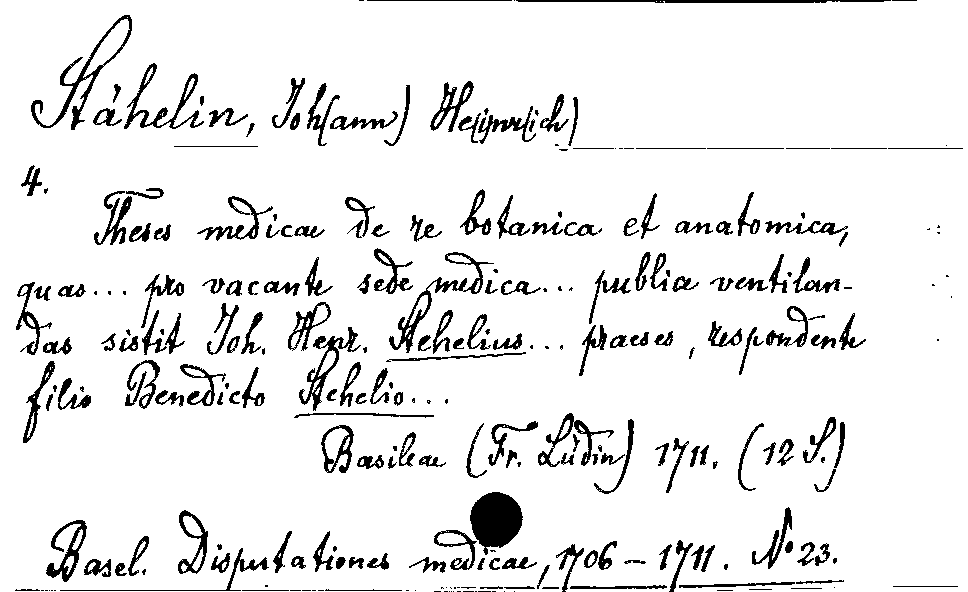 Stähelin, Joh(ann) He(i)nr(ich)
4.
Theses medicae de re botanica et anatomica,
quas... pro vacante sede medica... publice ventilan-
das sistit Joh. Henr. Stehelius... praeses, respondente
filio Benedicto Stehelio...
Basileae (Fr. Lüdin) 1711. (12 S.)
Basel. Disputationes medicae, 1706 – 1711. No 23.